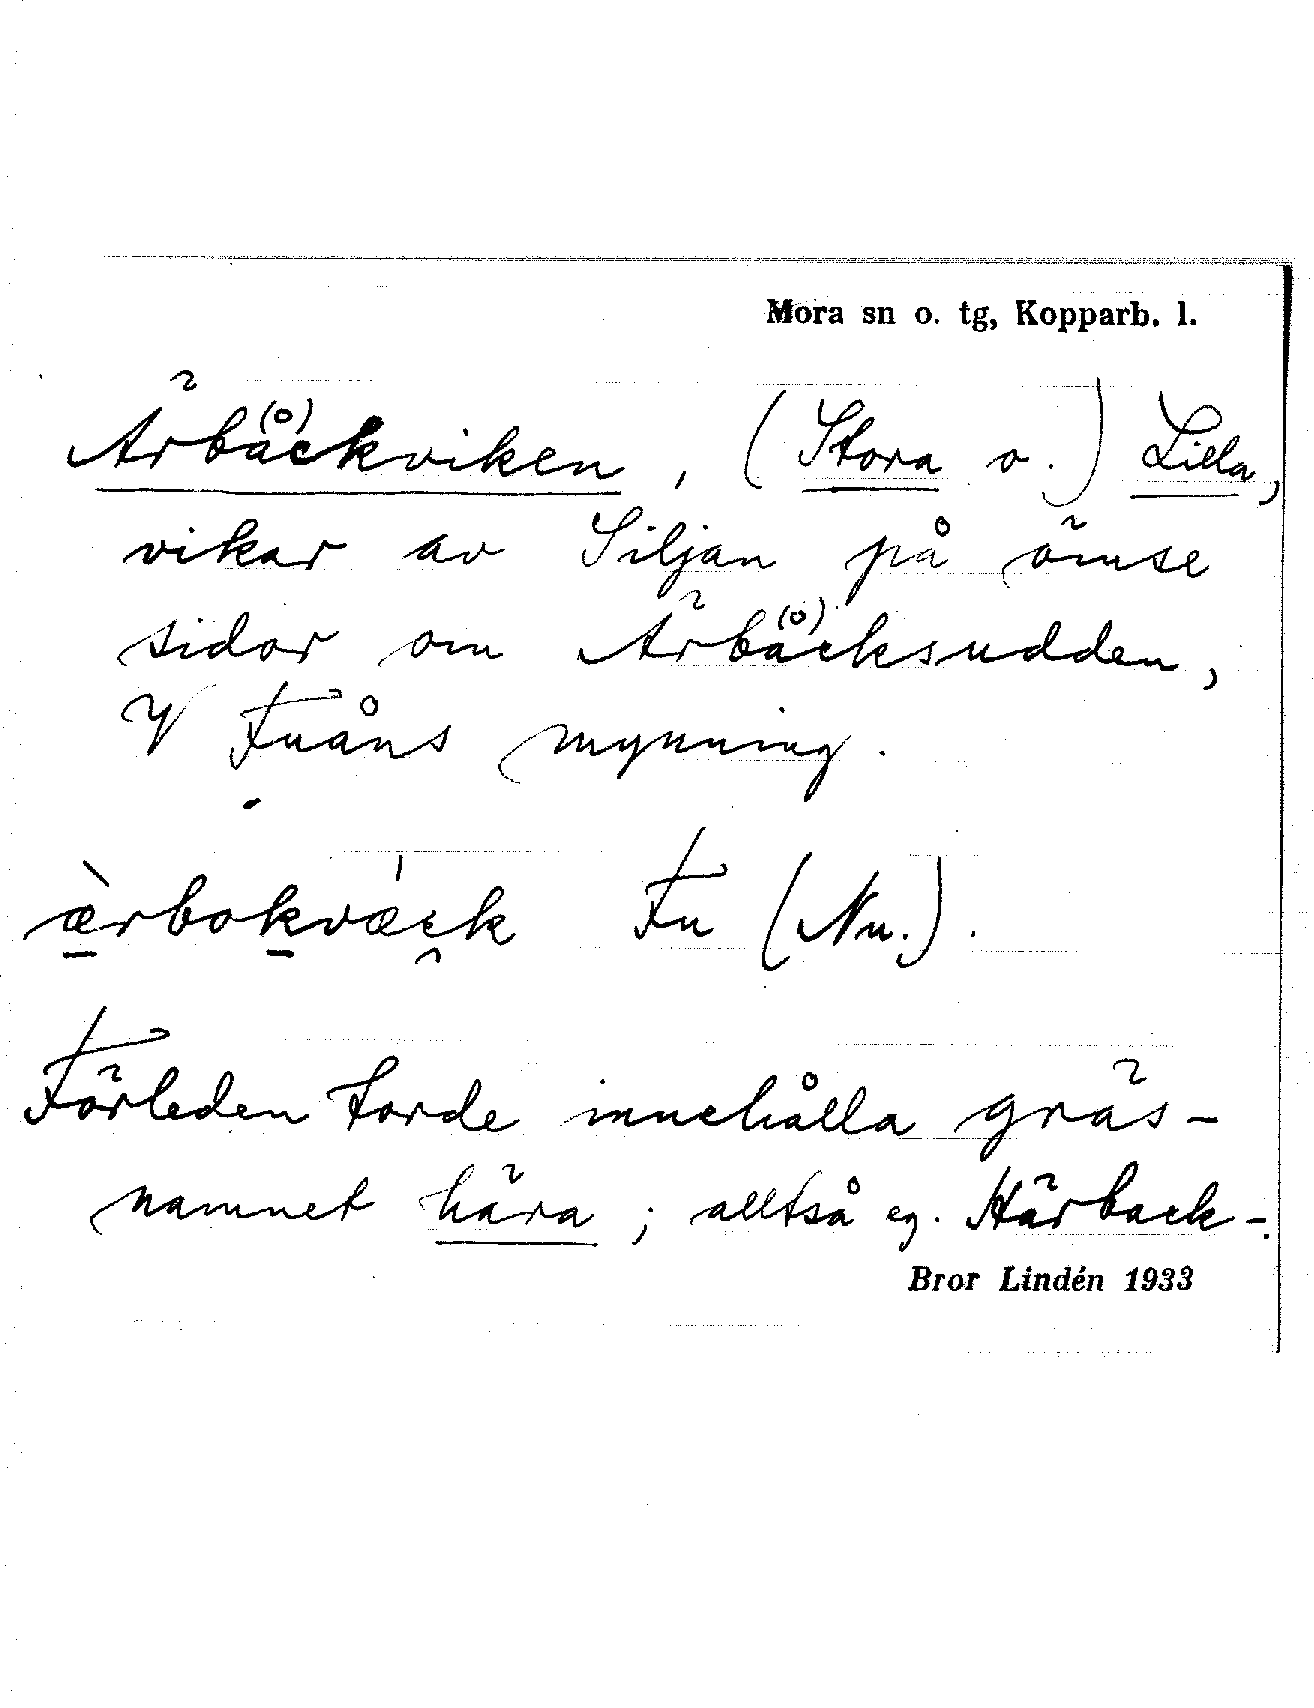 Mora sn o. tg, Kopparb. l.
Ärb(å)ckviken, (Stora o.) Lilla,
vikar av Siljan på ömse
sidor om Ärb(å)cksudden,
V Fuåns mynning.
æ̀rbokvæck Fu (Nu.).
Förleden torde innehålla gräs-
namnet hära; alltså eg. Härback-.
Bror Lindén 1933